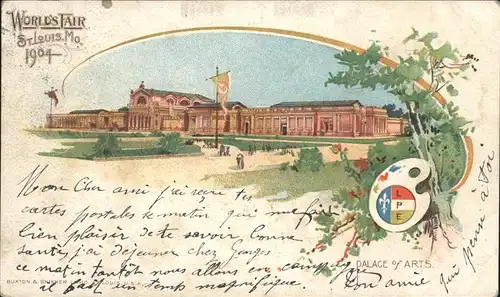 WORLD'S FAIR
ST. LOUIS, MO.
1904
L P E
PALACE OF ARTS.
Mon Cher ami j'ai reçue tes
cartes postales ce matin qui me fait
bien plaisir de te savoir bonne
santé, j'ai déjeuner chez Georges
ce matin tantôt nous allons en campagne
il fait un temps magnifique.
Ton amie
qui pense à toi
BUXTON & SKINNER ST. LOUIS U.S.A.